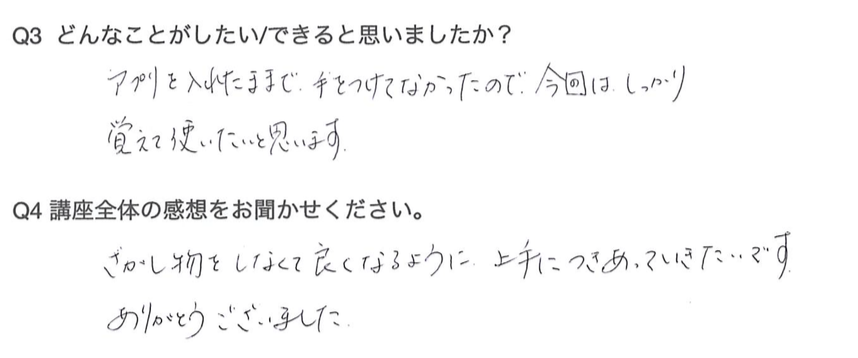 Q3 どんなことがしたい/できると思いましたか？
アプリを入れたままで、手をつけてなかったので、今回は、しっかり
覚えて使いたいと思います。
Q4 講座全体の感想をお聞かせください。
さがし物をしなくて良くなるように、上手につきあっていきたいです。
ありがとうございました。